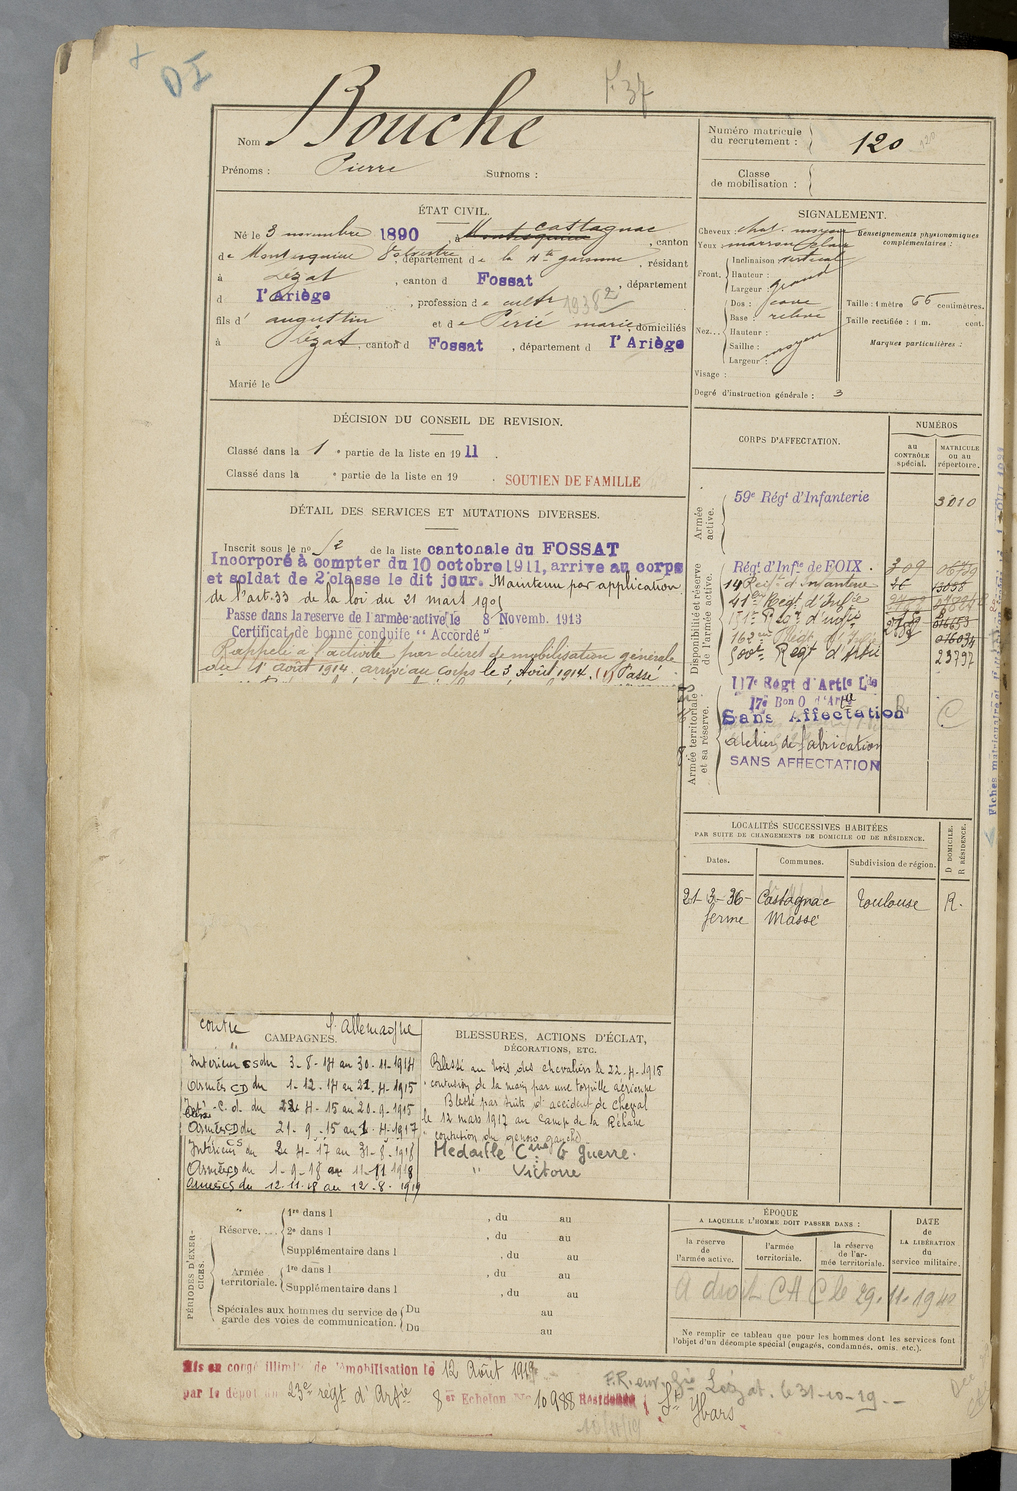 DI
F 37
Nom Bouche
Prénoms : Pierre Surnoms :
ÉTAT CIVIL.
Né le 3 novembre 1890 , à Montesquieu Castagnac , canton
de Montesquieu Volvestre , département de la Hte garonne , résidant
à Lézat , canton d Fossat , département
d l'Ariège , profession de cultr 1938 2
fils d' augustin et de Périé marie domiciliés
à Lézat , canton d Fossat , département d l'Ariège
Marié le
DÉCISION DU CONSEIL DE REVISION.
Classé dans la 1 e partie de la liste en 1911 .
Classé dans la e partie de la liste en 19 . SOUTIEN DE FAMILLE
DÉTAIL DES SERVICES ET MUTATIONS DIVERSES.
Inscrit sous le no 52 de la liste cantonale du FOSSAT
Incorporé à compter du 10 octobre 1911, arrive au corps
et soldat de 2e classe le dit jour. Maintenu par application
de l'art. 33 de la loi du 21 mars 1905
Passe dans la reserve de l'armée active le 8 Novemb. 1913
Certificat de bonne conduite "Accordé"
Rappelé à l'activité par décret de mobilisation générale
du 1er août 1914, arrivé au corps le 3 Août 1914. (1) Passé
contre l'Allemagne
CAMPAGNES.
Interieur CS du 3-8-14 au 30-11-1914
Armées CD du 1-12-14 au 21-4-1915
Intr blessé C.d. du 22-4-15 au 20-9-1915
Armées CD du 21-9-15 au 1-4-1917
Intérieur CS du 2-4-17 au 31-8-1918
Armées CD du 1-9-18 au 11-11-1918
Armées CS du 12.11.18 au 12-8-1919
BLESSURES, ACTIONS D'ÉCLAT,
DÉCORATIONS, ETC.
Blessé au bois des chevaliers le 22-4-1915
contusion de la main par une torpille aérienne
Blessé par suite d'accident de cheval
le 12 mars 1917 au Camp de la Réhale
contution du genou gauche
Medaille Cive G Guerre.
" Victoire
PÉRIODES D'EXERCICES.
Réserve.... 1re dans l , du au
2e dans l , du au
Supplémentaire dans l , du au
Armée territoriale. 1re dans l , du au
Supplémentaire dans l , du au
Spéciales aux hommes du service de garde des voies de communication. Du au
Du au
Mis en congé illimité de démobilisation le 12 Août 1919
par le dépôt du 23e régt d'Artie 8 er Echelon No 10988 Résidence St Ybars
F.R. env. Gie Lézat. le 31-10-19
Numéro matricule du recrutement : 120
Classe de mobilisation :
SIGNALEMENT.
Cheveux chat. moyen
Yeux marron clair
Front. Inclinaison vertical
Hauteur :
Largeur : grand
Nez... Dos : cave
Base : relevé
Hauteur :
Saillie :
Largeur : moyen
Visage :
Degré d'instruction générale : 3
Renseignements physionomiques complémentaires :
Taille : 1 mètre 66 centimètres.
Taille rectifiée : 1 m. cent.
Marques particulières :
CORPS D'AFFECTATION.
NUMÉROS
au CONTRÔLE spécial.
MATRICULE ou au répertoire.
Armée active.
59e Régt d'Infanterie 3010
Disponibilité et réserve de l'armée active.
Régt d'Infie de FOIX .
14 Reigt d'Infanterie
41eme Regt. d'Infie
162me Regt. d'Infie 016034
500e Regt d'Artie 23797
Armée territoriale et sa réserve.
117e Régt d'Artie Lde
17e Bon O d'Artie
Sans Affectation
Atelier de fabrication
SANS AFFECTATION
LOCALITÉS SUCCESSIVES HABITÉES
PAR SUITE DE CHANGEMENTS DE DOMICILE OU DE RÉSIDENCE.
Dates. Communes. Subdivision de région. D DOMICILE. R RÉSIDENCE.
21-3-36- Castagnac Toulouse R.
ferme Massé
ÉPOQUE
A LAQUELLE L'HOMME DOIT PASSER DANS :
la réserve de l'armée active.
l'armée territoriale.
la réserve de l'armée territoriale.
DATE de LA LIBÉRATION du service militaire.
a droit CHC le 29.11.1940
Ne remplir ce tableau que pour les hommes dont les services font
l'objet d'un décompte spécial (engagés, condamnés, omis, etc.).